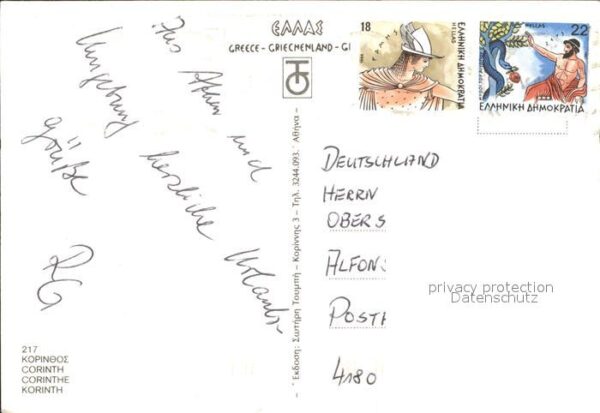 Aus Athen und
Umgebung herzliche Urlaubs-
grüße
RG
ΕΛΛΑΣ
GREECE - GRIECHENLAND - G
18
ΕΡΜΗΣ
HELLAS
ΕΛΛΗΝΙΚΗ ΔΗΜΟΚΡΑΤΙΑ
HELLAS
22
ΕΛΛΗΝΙΚΗ ΔΗΜΟΚΡΑΤΙΑ
Έκδοση: Σωτήρη Τουμπή – Κορίννης 3 – Τηλ. 3244.093 Αθήνα –
DEUTSCHLAND
HERRN
OBERS
ALFONS
POSTF
4180
privacy protection
Datenschutz
217
ΚΟΡΙΝΘΟΣ
CORINTH
CORINTHE
KORINTH